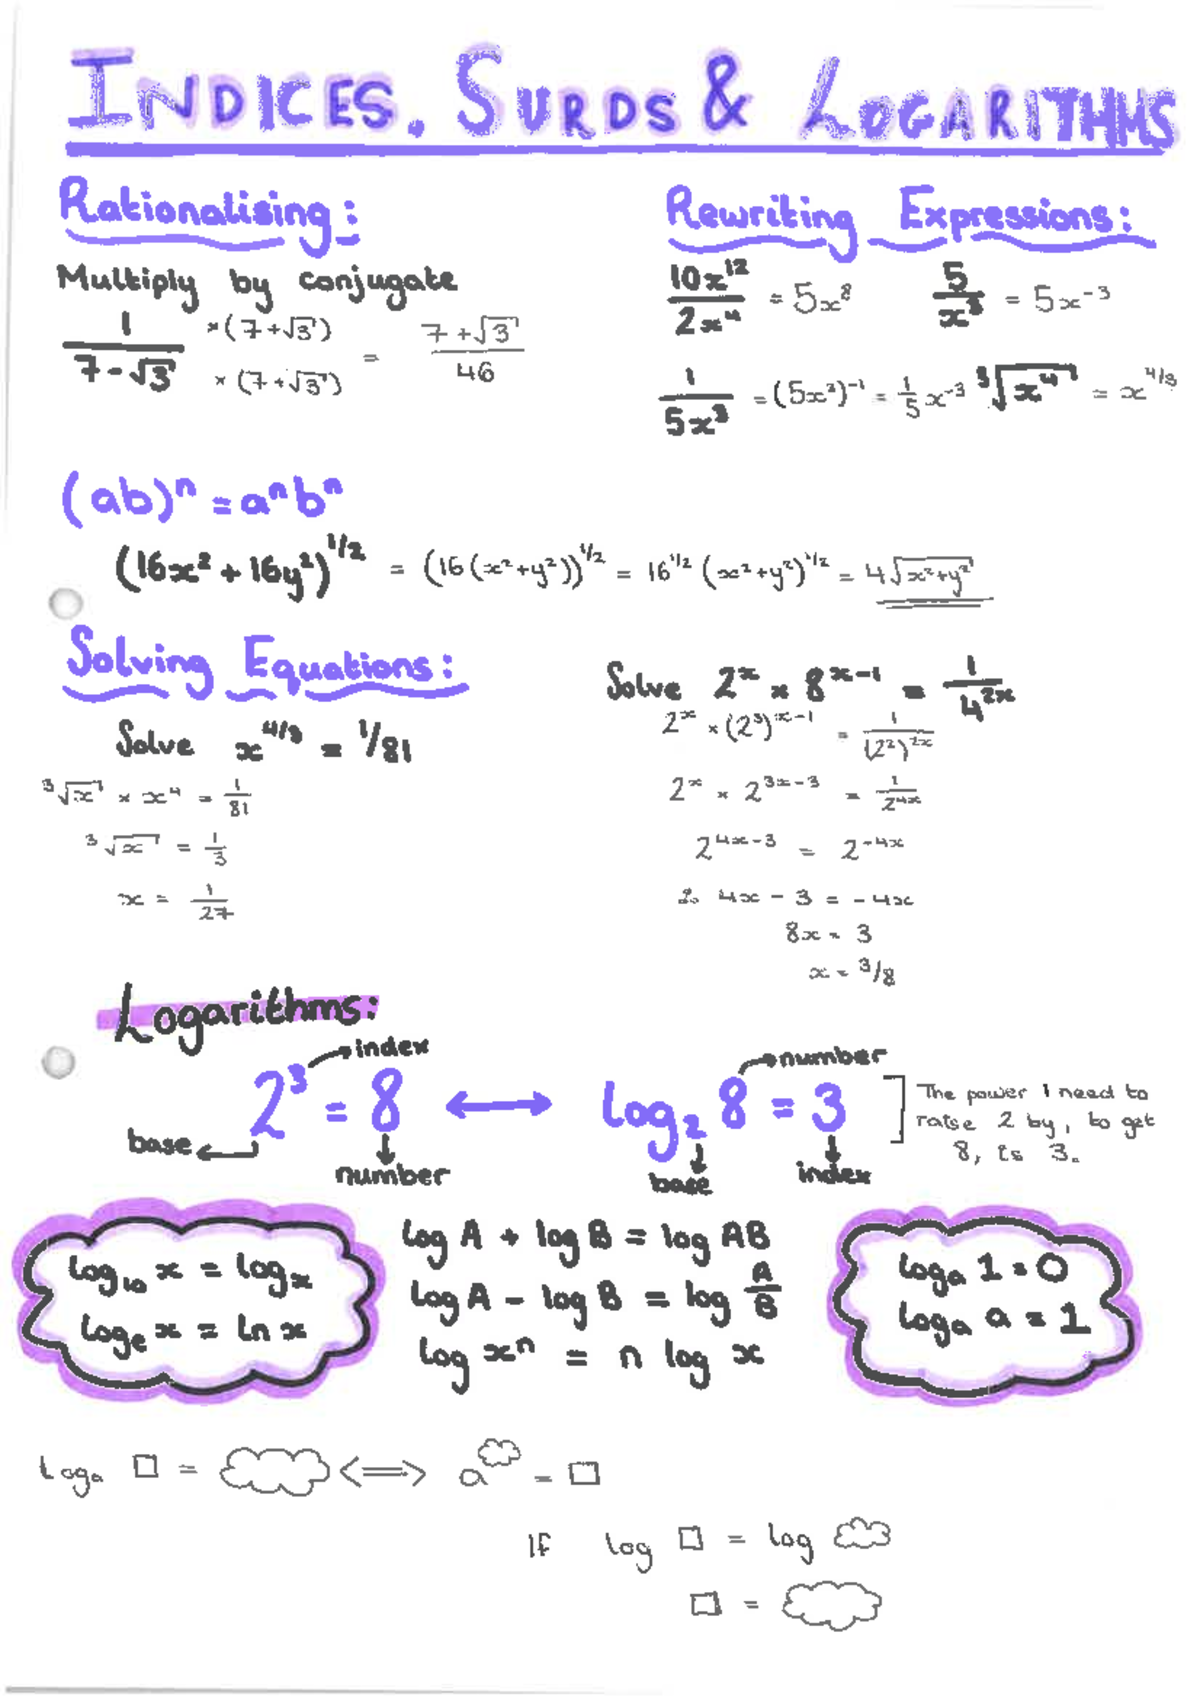 INDICES, SURDS & LOGARITHMS
Rationalising:
Multiply by conjugate
1/(7-√3) ×(7+√3) / ×(7+√3) = (7+√3)/46
Rewriting Expressions:
10x¹²/2x⁴ = 5x⁸   5/x³ = 5x⁻³
1/5x³ = (5x³)⁻¹ = 1/5 x⁻³   ³√x⁴ = x^4/3
(ab)ⁿ = aⁿbⁿ
(16x² + 16y²)^1/2 = (16(x²+y²))^1/2 = 16^1/2 (x²+y²)^1/2 = 4√x²+y²
Solving Equations:
Solve x^4/3 = 1/81
³√x × x⁴ = 1/81
³√x = 1/3
x = 1/27
Solve 2^x × 8^x-1 = 1/4^2x
2^x × (2³)^x-1 = 1/(2²)^2x
2^x × 2^3x-3 = 1/2^4x
2^4x-3 = 2^-4x
4x - 3 = -4x
8x = 3
x = 3/8
Logarithms:
2³ = 8 ↔ log₂ 8 = 3
index
base
number
number
base
index
The power I need to
raise 2 by, to get
8, is 3.
log₁₀ x = logₓ
logₑ x = ln x
log A + log B = log AB
log A - log B = log A/B
log xⁿ = n log x
logₐ 1 = 0
logₐ a = 1
logₐ □ = ☁ ⟺ a^☁ = □
If log □ = log ☁
□ = ☁